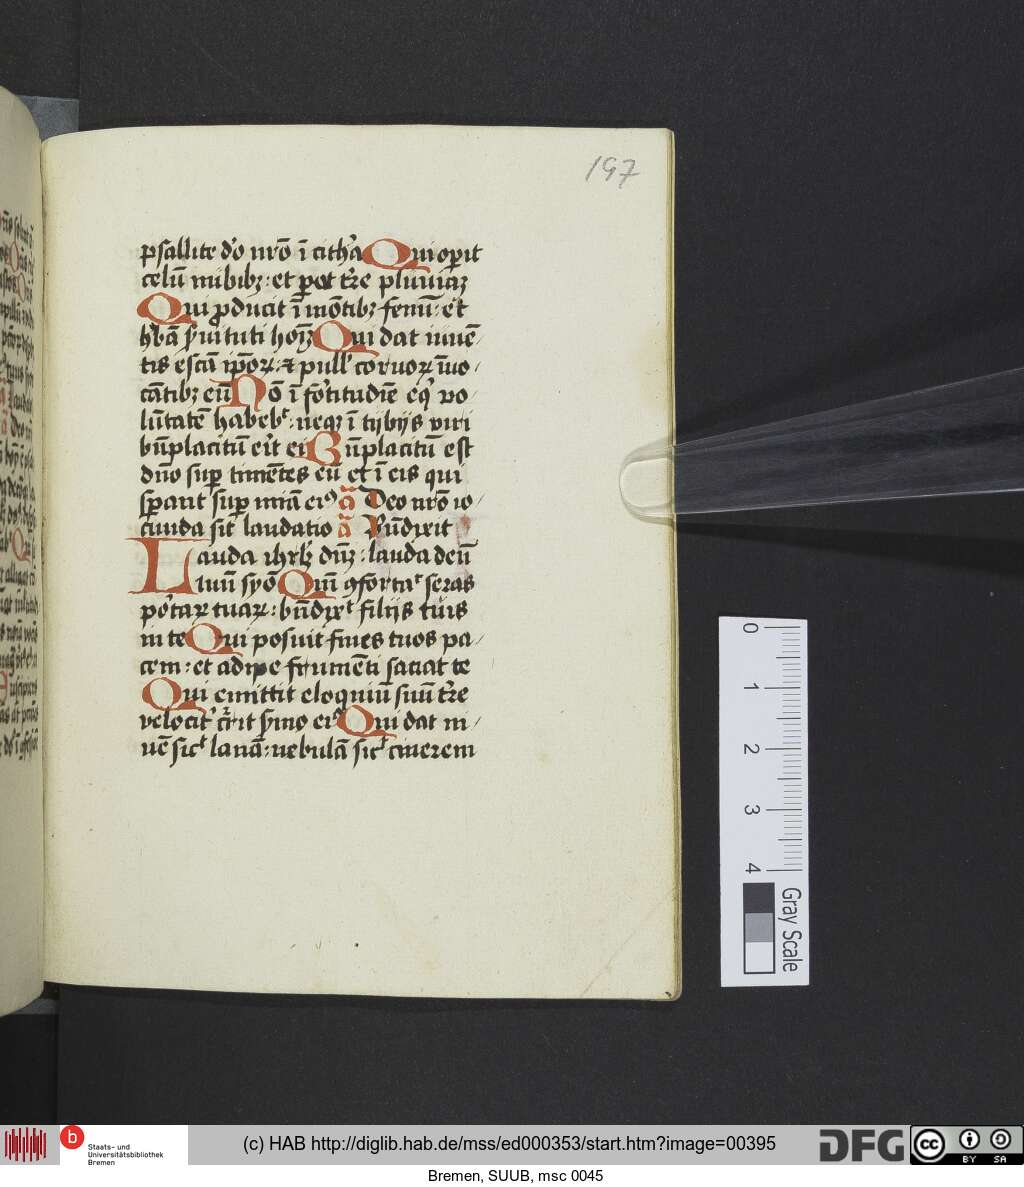 197
psallite dō nrō ī cithᵃa Qui opit
celū nubibꝫ : et pat tr̄e pluuiaꝫ
Qui ꝓducit ī mōtibꝫ fenū : et
hᵉbā ẜuituti hoīꝫ Qui dat iumē⸗
tis escā ip̄oꝝ : ⁊ pull' coruoꝝ īuo⸗
cātibꝫ eū Nō ī fortitudīe eqⁱ vo⸗
lūtatē habebᵗ : neqꝫ ī tybijs viri
bn̄placitū erit ei Bn̄placitū est
dn̄o suꝑ timētes eū et ī eis qui
sꝑant suꝑ mīa eiꝰ a᷃ Deo nrō io⸗
cunda sit laudatio a᷃ Bn̄dixit
Lauda ihrlꝫ dn̄ꝫ : lauda deū
tuū syō Qm̄ ꝯfortaᵗ seras
portaꝝ tuaꝝ : bn̄dixᵗ filijs tuis
in te Qui posuit fines tuos pa⸗
cem : et adipe frumēti saciat te
Qui emittit eloquiū suū tr̄e
velocitᵉ cr̄it ẜmo eiꝰ Qui dat ni⸗
uē sicᵗ lanā : nebulā sicᵗ cinerem
0 1 2 3 4
Gray Scale
b Staats- und
Universitätsbibliothek
Bremen
(c) HAB http://diglib.hab.de/mss/ed000353/start.htm?image=00395
DFG
cc BY SA
Bremen, SUUB, msc 0045